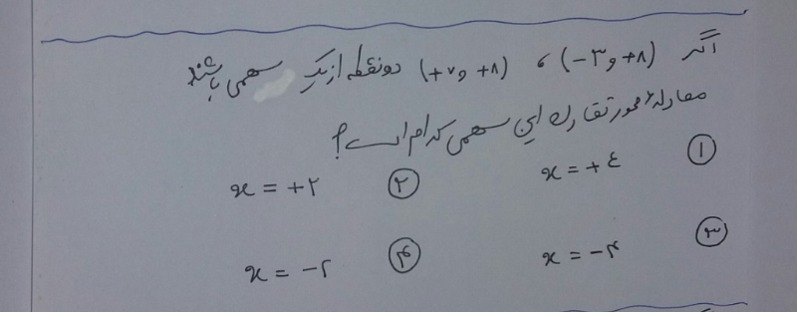 اگر (-۳ و +۸) ، (+۷ و +۸) دو نقطه از یک سهمی باشند
معادلهٔ محور تقارن این سهمی کدام است؟
① x = +٤ ② x = +۲
③ x = -۴ ④ x = -۲